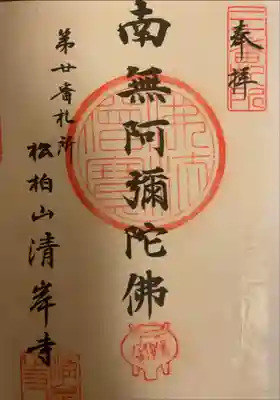 奉拝
南無阿彌陀佛
第廿番札所
松柏山清岸寺
佛法僧寶